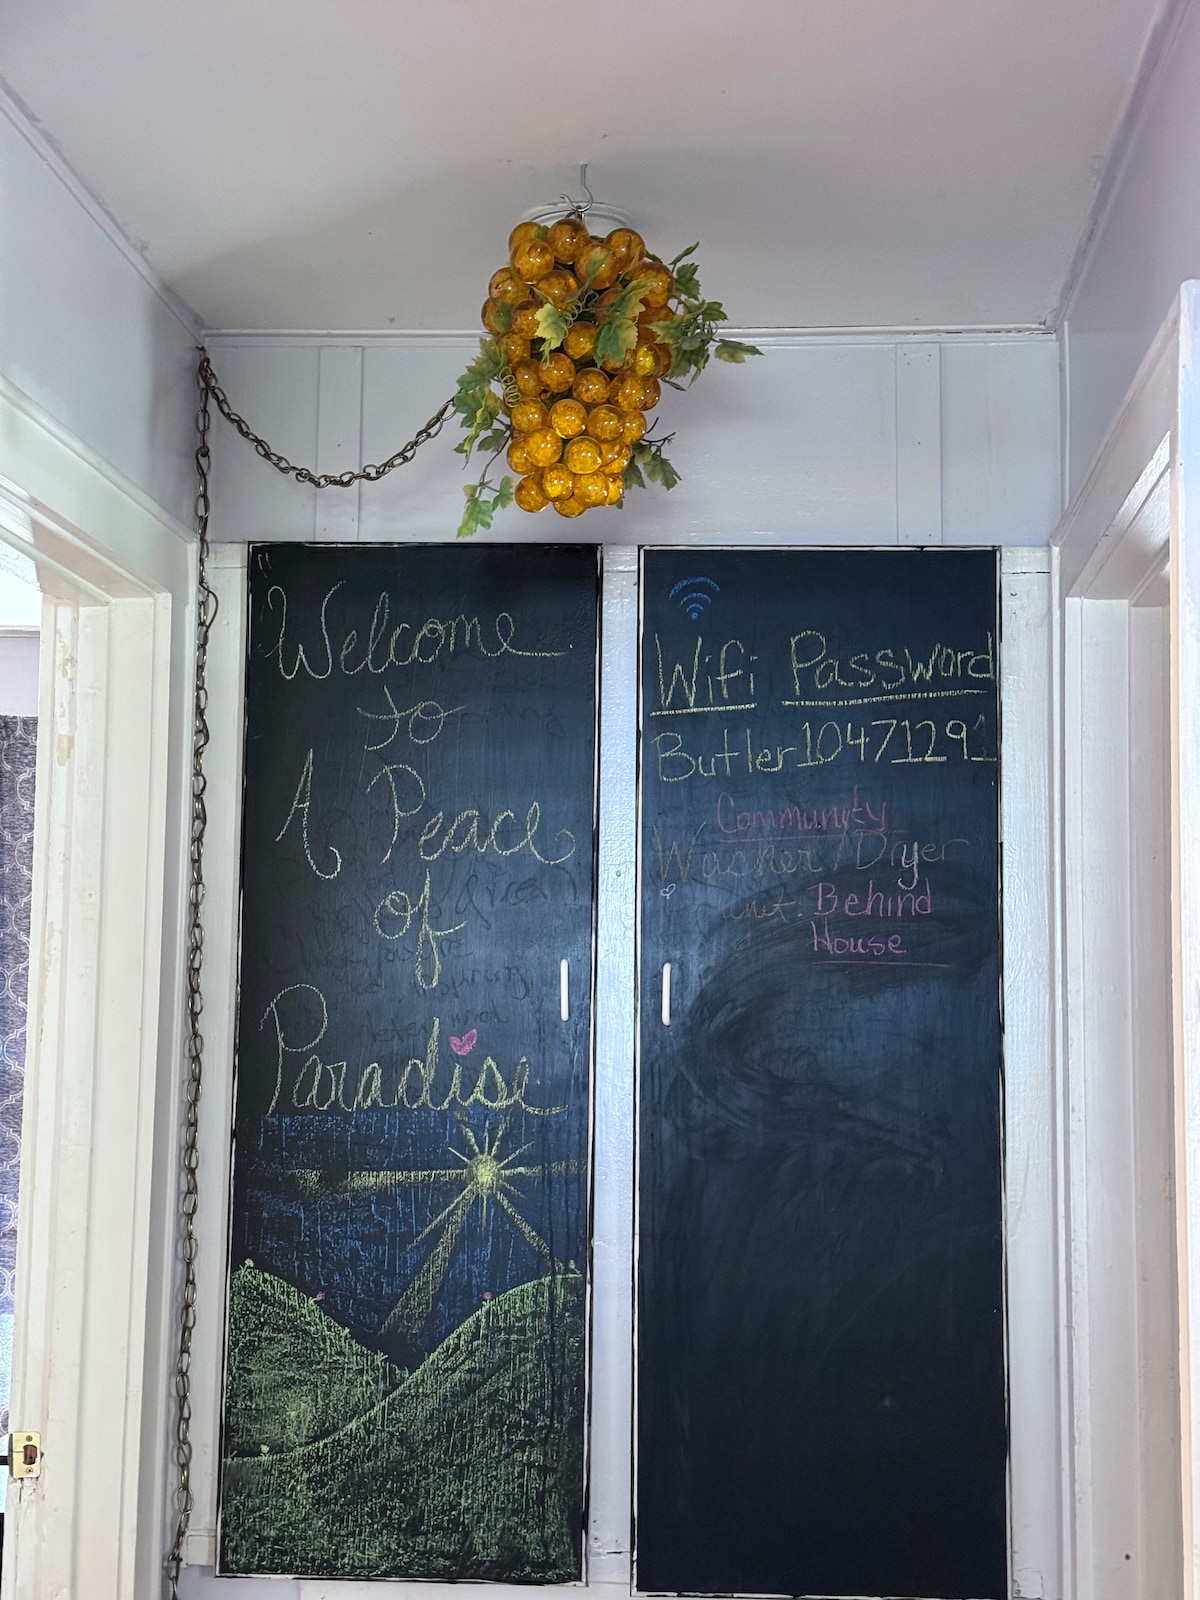 "Welcome
to
A Peace
of
Paradise
Wifi Password
Butler10471291
Community
Washer/Dryer
unit. Behind
House